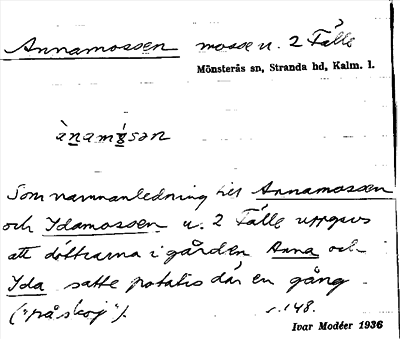 Annamossen mosse u. 2 Fälle
Mönsterås sn, Stranda hd, Kalm. l.
ànamósən
Som namnanledning till Annamossen
och Idamossen u. 2 Fälle uppgives
att döttrarna i gården Anna och
Ida satte potatis där en gång
("på skoj"). s. 148.
Ivar Modéer 1936